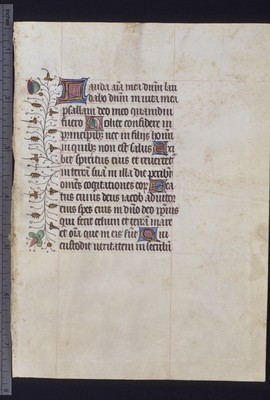 Lauda aīa mea dnīm lau
dabo dnīm in vita mea
psallam deo meo quamdiu
fuero Nolite confidere in
principibꝫ nec in filijs hoīm
in quibꝫ non est salus Exi
bit spiritus eius et revertet̄
in terrā suā in illa die peribūt
omēs cogitationes eoꝝ Bea
tus cuius deus iacob adiutor
eius spes eius in dn̄o deo ip̄ius
qui fecit celum et terrā mare
et oīa que in eis sūt Qui
custodit veritatem in seculū